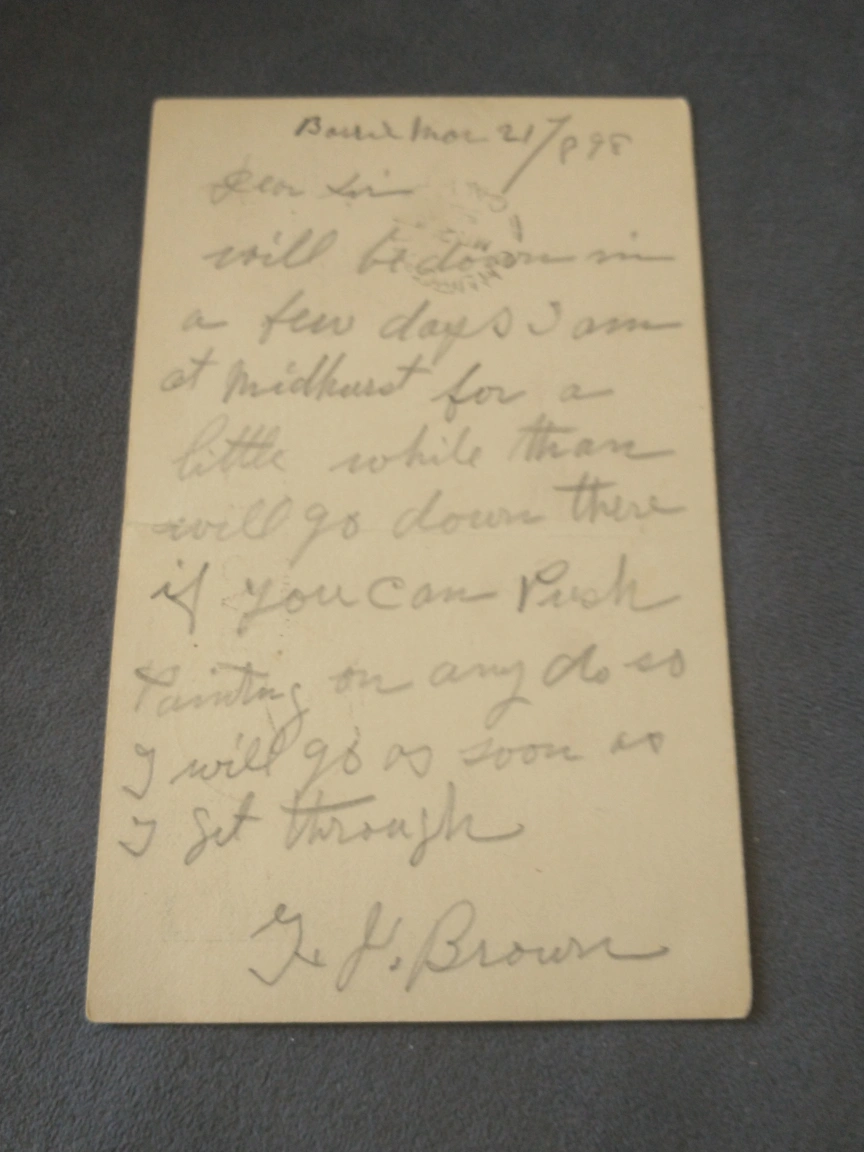 Barrie Mar 21/898
Dear Sir
will be down in
a few days I am
at Midhurst for a
little while than
will go down there
if you can Push
Painting on any do so
I will go as soon as
I get through
Brown